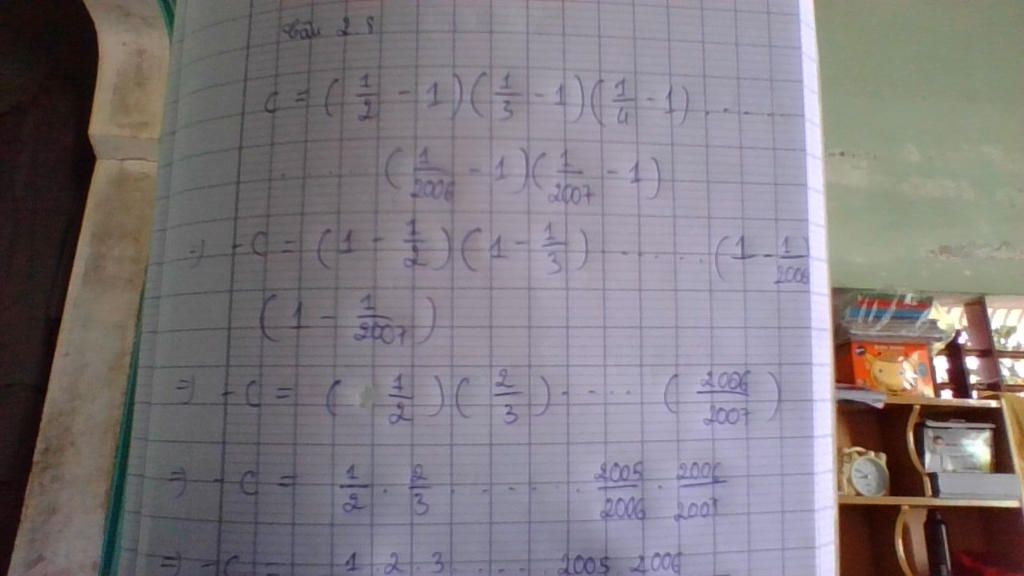 Bài 2.8
C = (1/2 - 1)(1/3 - 1)(1/4 - 1) . . . . . .
. . . . . . (1/2006 - 1)(1/2007 - 1)
=> -C = (1 - 1/2)(1 - 1/3) . . . . . . (1 - 1/2006)
(1 - 1/2007)
=> -C = (1/2)(2/3) . . . . . (2006/2007)
=> -C = 1/2 . 2/3 . . . . . . 2005/2006 . 2006/2007
=> -C = 1 . 2 . 3 . . . . . . 2005 . 2006